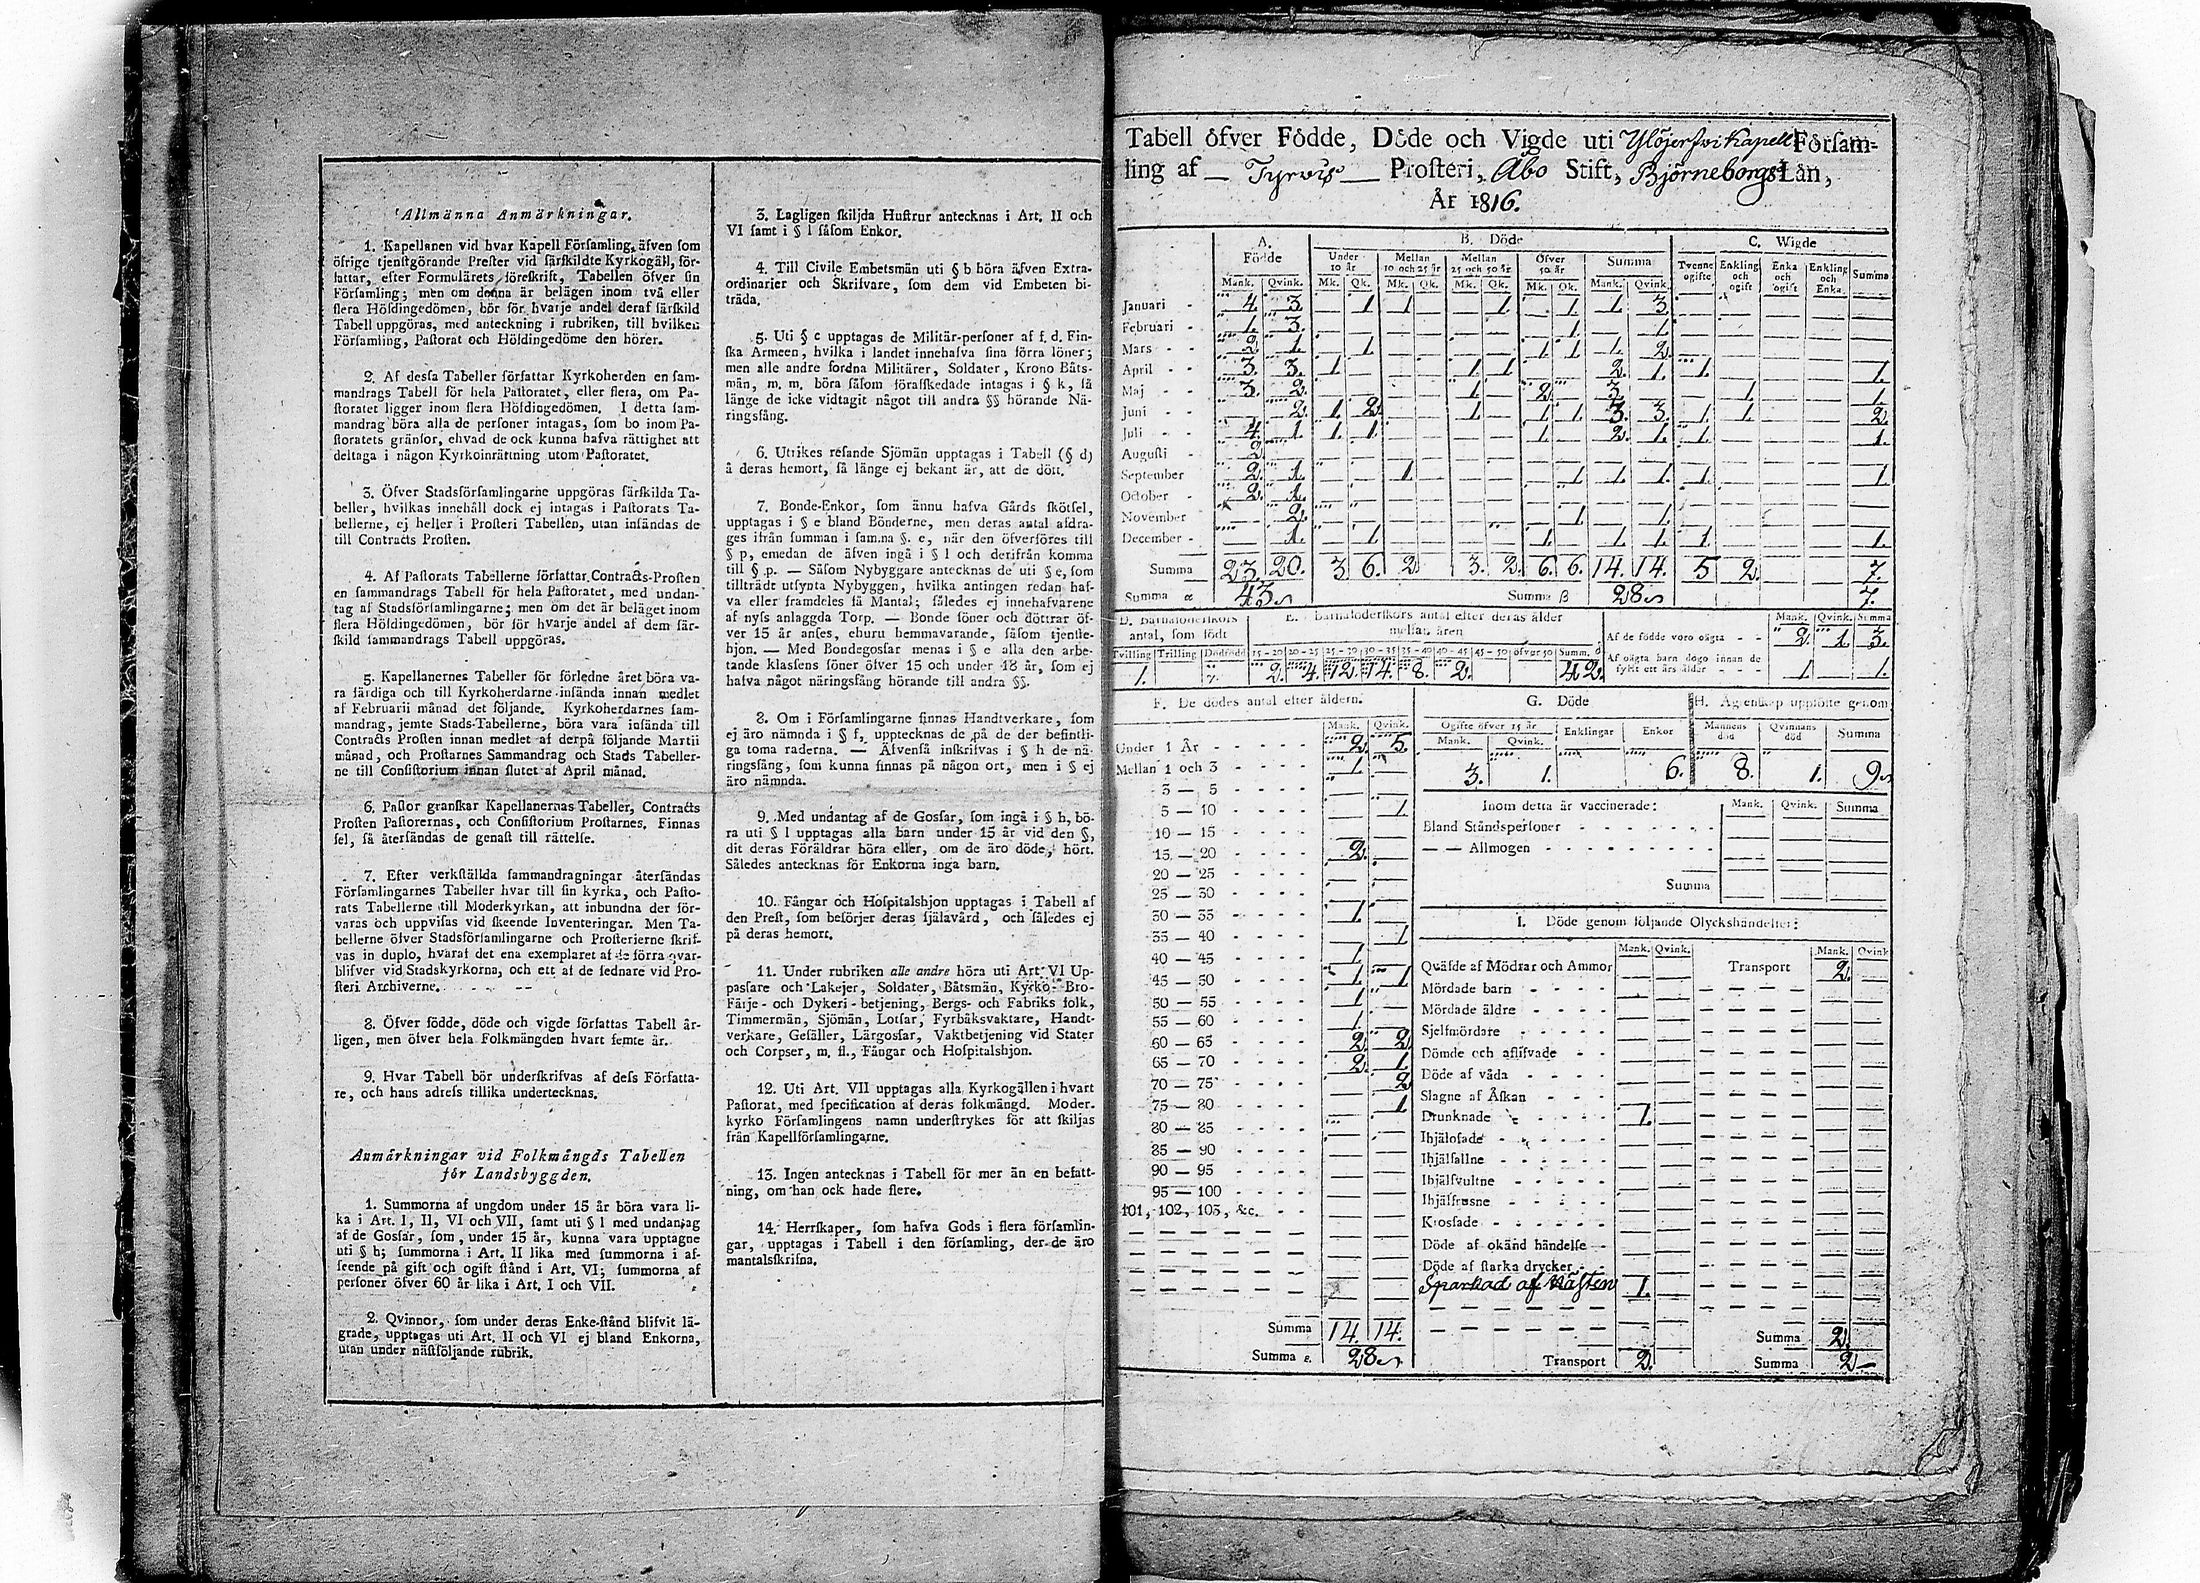 Allmänna Anmärkningar.
1. Kapellanen vid hvar Kapell Församling, äfven som
öfrige tjenstgörande Prester vid särskildte Kyrkogäll, för-
fattar, efter Formulärets föreskrift, Tabellen öfver sin
Församling; men om denna är belägen inom två eller
flera Höfdingedömen, bör för hvarje andel deraf särskild
Tabell uppgöras, med anteckning i rubriken, till hvilken
Församling, Pastorat och Höfdingedöme den hörer.
2. Af dessa Tabeller författar Kyrkoherden en sam-
mandrags Tabell för hela Pastoratet, eller flera, om Pa-
storatet ligger inom flera Höfdingedömen. I detta sam-
mandrag böra alla de personer intagas, som bo inom Pa-
storatets gränsor, ehvad de ock kunna hafva rättighet att
deltaga i någon Kyrkoinrättning utom Pastoratet.
3. Öfver Stadsförsamlingarne uppgöras särskilda Ta-
beller, hvilkas innehåll dock ej intagas i Pastorats Ta-
bellerne, ej heller i Prosteri Tabellen, utan insändas de
till Contracts Prosten.
4. Af Pastorats Tabellerne författar Contracts-Prosten
en sammandrags Tabell för hela Pastoratet, med undan-
tag af Stadsförsamlingarne; men om det är beläget inom
flera Höfdingedömen, bör för hvarje andel af dem sär-
skild sammandrags Tabell uppgöras.
5. Kapellanernes Tabeller för förledne året böra va-
ra färdiga och till Kyrkoherdarne insända innan medlet
af Februarii månad det följande. Kyrkoherdarnes sam-
mandrag, jemte Stads-Tabellerne, böra vara insände till
Contracts Prosten innan medlet af derpå följande Martii
månad, och Prostarnes Sammandrag och Stads Tabeller-
ne till Consistorium innan slutet af April månad.
6. Pastor granskar Kapellanernas Tabeller, Contracts
Prosten Pastorernas, och Consistorium Prostarnes. Finnas
fel, så återsändas de genast till rättelse.
7. Efter verkställda sammandragningar återsändas
Församlingarnes Tabeller hvar till sin kyrka, och Pasto-
rats Tabellerne till Moderkyrkan, att inbundna der för-
varas och uppvisas vid skeende Inventeringar. Men Ta-
bellerne öfver Stadsförsamlingarne och Prosterierne skrif-
vas in duplo, hvaraf det ena exemplaret af de förra qvar-
blifver vid Stadskyrkorna, och ett af de sednare vid Pro-
steri Archiverne.
8. Öfver födde, döde och vigde författas Tabell år-
ligen, men öfver hela Folkmängden hvart femte år.
9. Hvar Tabell bör underskrifvas af dess Författa-
re, och hans adress tillika undertecknas.
Anmärkningar vid Folkmängds Tabellen
för Landsbyggden.
1. Summorna af ungdom under 15 år böra vara li-
ka i Art. I, II, VI och VII, samt uti § l med undantag
af de Gossar, som, under 15 år, kunna vara upptagne
uti § h; summorna i Art. II lika med summorna i af-
seende på gift och ogift stånd i Art. VI; summorna af
personer öfver 60 år lika i Art. I och VII.
2. Qvinnor, som under deras Enke-stånd blifvit lä-
grade, upptagas uti Art. II och VI ej bland Enkorna,
utan under nästföljande rubrik.
3. Lagligen skiljda Hustrur antecknas i Art. II och
VI samt i § l såsom Enkor.
4. Till Civile Embetsmän uti § b höra äfven Extra-
ordinarier och Skrifvare, som dem vid Embeten bi-
träda.
5. Uti § c upptagas de Militär-personer af f. d. Fin-
ska Armeen, hvilka i landet innehafva sina förra löner;
men alle andre fordna Militärer, Soldater, Krono Båts-
män, m. m. böra såsom förafskedade intagas i § k, så
länge de icke vidtagit något till andra §§ hörande Nä-
ringsfång.
6. Utrikes resande Sjömän upptagas i Tabell (§ d)
å deras hemort, så länge ej bekant är, att de dött.
7. Bonde-Enkor, som ännu hafva Gårds skötsel,
upptagas i § e bland Bönderne, men deras antal afdra-
ges ifrån summan i samma §. e, när den öfverföres till
§ p, emedan de äfven ingå i § l och derifrån komma
till § p. — Såsom Nybyggare antecknas de uti § e, som
tillträdt utsynta Nybyggen, hvilka antingen redan haf-
va eller framdeles få Mantal; således ej innehafvarene
af nyss anlaggda Torp. — Bonde söner och döttrar öf-
ver 15 år anses, ehuru hemmavarande, såsom tjenste-
hjon. — Med Bondegossar menas i § e alla den arbe-
tande klassens söner öfver 15 och under 18 år, som ej
hafva något näringsfång hörande till andra §§.
8. Om i Församlingarne finnas Handtverkare, som
ej äro nämnda i § f, upptecknas de på de der befintli-
ga toma raderna. — Äfvenså inskrifvas i § h de nä-
ringsfång, som kunna finnas på någon ort, men i § ej
äro nämnda.
9. Med undantag af de Gossar, som ingå i § h, bö-
ra uti § l upptagas alla barn under 15 år vid den §,
dit deras Föräldrar höra eller, om de äro döde, hört.
Således antecknas för Enkorna inga barn.
10. Fångar och Hospitalshjon upptagas i Tabell af
den Prest, som besörjer deras själavård, och således ej
på deras hemort.
11. Under rubriken alle andre höra uti Art. VI Up-
passare och Lakejer, Soldater, Båtsmän, Kyrko- Bro-
Färje- och Dykeri-betjening, Bergs- och Fabriks folk,
Timmermän, Sjömän, Lotsar, Fyrbåksvaktare, Handt-
verkare, Gesäller, Lärgossar, Vaktbetjening vid Stater
och Corpser, m. fl., Fångar och Hospitalshjon.
12. Uti Art. VII upptagas alla Kyrkogällen i hvart
Pastorat, med specification af deras folkmängd. Moder-
kyrko Församlingens namn understrykes för att skiljas
från Kapellförsamlingarne.
13. Ingen antecknas i Tabell för mer än en befatt-
ning, om han ock hade flere.
14. Herrskaper, som hafva Gods i flera församlin-
gar, upptagas i Tabell i den församling, der de äro
mantalsskrifna.
Tabell öfver Födde, Döde och Vigde uti Ylöjerfvi Kapell Försam-
ling af Tyrvis Prosteri, Åbo Stift, Björneborgs Län,
År 1816.
A. Födde B. Döde C. Wigde
Under 10 år Mellan 10 och 25 år Mellan 25 och 50 år Öfver 50 år Summa Tvenne ogifte Enkling och ogift Enka och ogift Enkling och Enka Summa
Mank. Qvink. Mk. Qk. Mk. Qk. Mk. Qk. Mk. Qk. Mank. Qvink.
Januari 4. 3. 1 1 1 1 1. 3
Februari 1. 3. 1. 1.
Mars 2. 1. 1 1 1 1. 2.
April 3. 3. 1. 1 1 2. 1. 1. 1.
Maj 3. 2. 1. 2. 3. 1. 1.
Juni 2. 1. 2. 1 1. 1 3. 3. 1 1 2.
Juli 4. 1 1. 1. 1. 2. 1. 1. 1.
Augusti 2.
September 2. 1. 1 1 1. 1. 1. 1
October 2. 1.
November 2. 1 1.
December 1. 1. 1. 1. 1. 1 1.
Summa 23. 20. 3. 6. 2 3. 2. 6. 6. 14. 14. 5 2. 7.
Summa α 43. Summa β 28 7.
D. Barnaföderskors antal, som födt
Tvilling Trilling Dödfödd
1.
E. Barnaföderskors antal efter deras ålder mellan åren
15-20 20-25 25-30 30-35 35-40 40-45 45-50 öfver 50 Summ.
2. 4. 12. 14. 8. 2. 42.
Mank. Qvink. Summa
Af de födde voro oägta 2. 1. 3.
Af oägta barn dogo innan de fyllt ett års ålder 1. 1.
F. De dödes antal efter åldern.
Mank. Qvink.
Under 1 År 2. 5.
Mellan 1 och 3 1.
3 — 5
5 — 10 1
10 — 15
15 — 20 2.
20 — 25
25 — 30
30 — 35 1.
35 — 40 1
40 — 45 1
45 — 50 1. 1
50 — 55 1.
55 — 60 1.
60 — 65 2. 2.
65 — 70 2. 1.
70 — 75 2
75 — 80 1
80 — 85
85 — 90
90 — 95
95 — 100
101, 102, 103, &c.
Summa 14. 14.
Summa ε. 28
G. Döde
Ogifte öfver 15 år Enklingar Enkor
Mank. Qvink.
3. 1. 6.
H. Ägtenskap upplöste genom
Mannens död Qvinnans död Summa
8. 1. 9
Inom detta år vaccinerade: Mank. Qvink. Summa
Bland Ståndspersoner
— — Allmogen
Summa
I. Döde genom följande Olyckshändelser:
Mank. Qvink. Mank. Qvink.
Qväfde af Mödrar och Ammor Transport 2.
Mördade barn
Mördade äldre
Sjelfmördare
Dömde och aflifvade
Döde af våda
Slagne af Åskan
Drunknade 1.
Ihjälosade
Ihjälfallne
Ihjälsvultne
Ihjälfrusne
Krossade
Döde af okänd händelse
Döde af starka drycker
Sparkad af Hästen 1.
Summa 2.
Transport 2. Summa 2